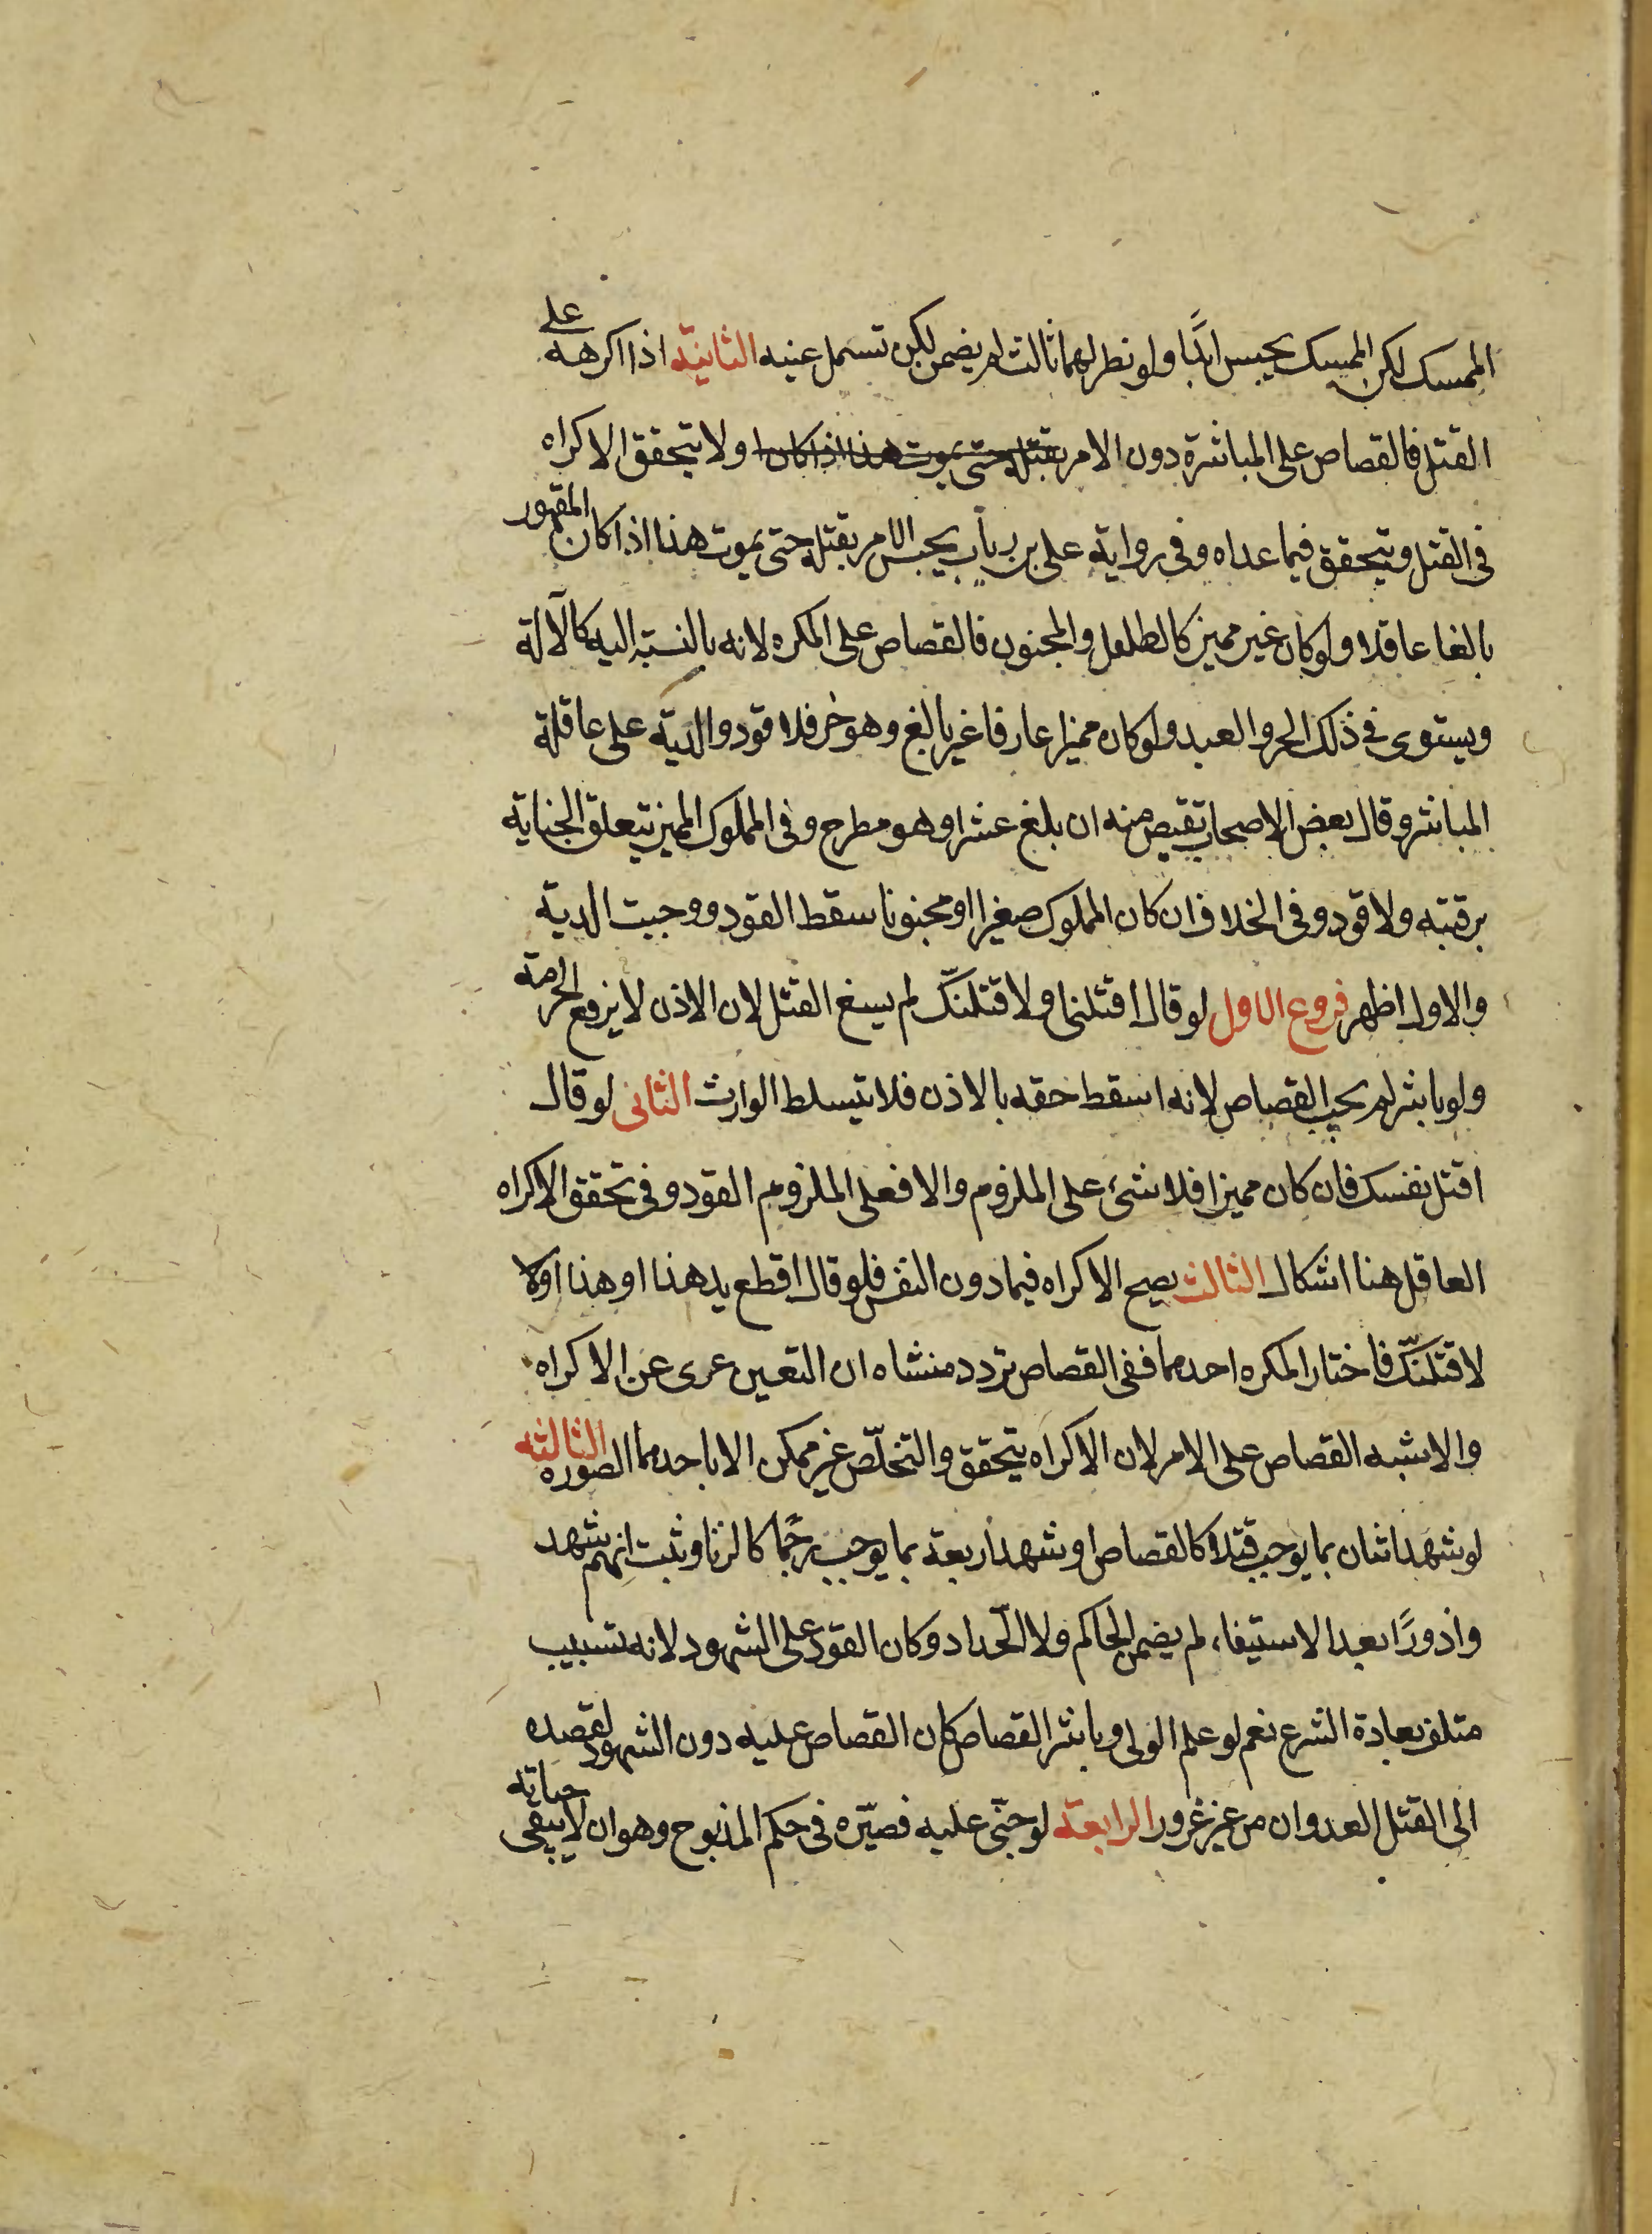 الممسك لكن الممسك يحبس ابدًا ولو نظر لهما ثالث لم يضمن لكن تسمل عينيه الثانية اذا اكرهه على
القتل فالقصاص على المباشرة دون الامر بقتله حتى يموت هذا اذا كان ولا يتحقق الاكراه
فى القتل ويتحقق فيما عداه وفى رواية على بن رياب يحبس الامر بقتله حتى يموت هذا اذا كان المقهور
بالغا عاقلا ولو كان غير مميز كالطلعل والمجنون فالقصاص على المكره لانه بالنسبة اليه كالآلة
ويستوى فى ذلك الحر والعبد ولو كان مميزا عارفا غير بالغ وهو حر فلا قود والدية على عاقلة
المباشر وقال بعض الاصحاب تقيص منه ان بلغ عشرا وهو مطرح وفى المملوك المميز يتعلق الجناية
برقبته ولا قود وفى الخلاف ان كان المملوك صغيرا او مجنونا سقط القود ووجبت الدية
والاول اظهر فروع الاول لو قال اقتلنى او لاقتلنّك لم يسغ القتل لان الاذن لا يرفع الحرمة
ولو باشر لم يجب القصاص لانه اسقط حقه بالاذن فلا يتسلط الوارث الثانى لو قال
اقتل نفسك فان كان مميزا فلا شىء على الملزوم والا فعلى الملزوم القود وفى تحقق الاكراه
العاقل هنا اشكال الثالث يصح الاكراه فيما دون النفس فلو قال اقطع يد هذا او هذا اولا
لاقتلنّك فاختار المكره احدهما ففى القصاص تردد منشاه ان التعيين عرى عن الاكراه
والاشبه القصاص على الامر لان الاكراه يتحقق والتخلّص غير ممكن الا باحدهما الصورة الثالثه
لو شهد اثنان بما يوجب قتلا كالقصاص او شهد اربعة بما يوجب رجمًا كالزنا وثبت انهم شهد
وا زورًا بعد الاستيفاء لم يضمن الحاكم ولا الحّداد وكان القود على الشهود لانه تسبيب
متلف بعادة الشرع نعم لو علم الولى وباشر القصاص كان القصاص عليه دون الشهود لقصده
الى القتل العدوان من غير غرور الرابعة لو جنّى عليه فصيّره فى حكم المذبوح وهو ان لا يبقى حياته